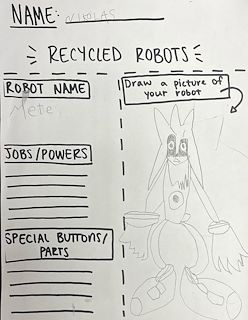 NAME: NIKOLAS
RECYCLED ROBOTS
ROBOT NAME
Mete
JOBS/POWERS
SPECIAL BUTTONS/
PARTS
Draw a picture of
your robot